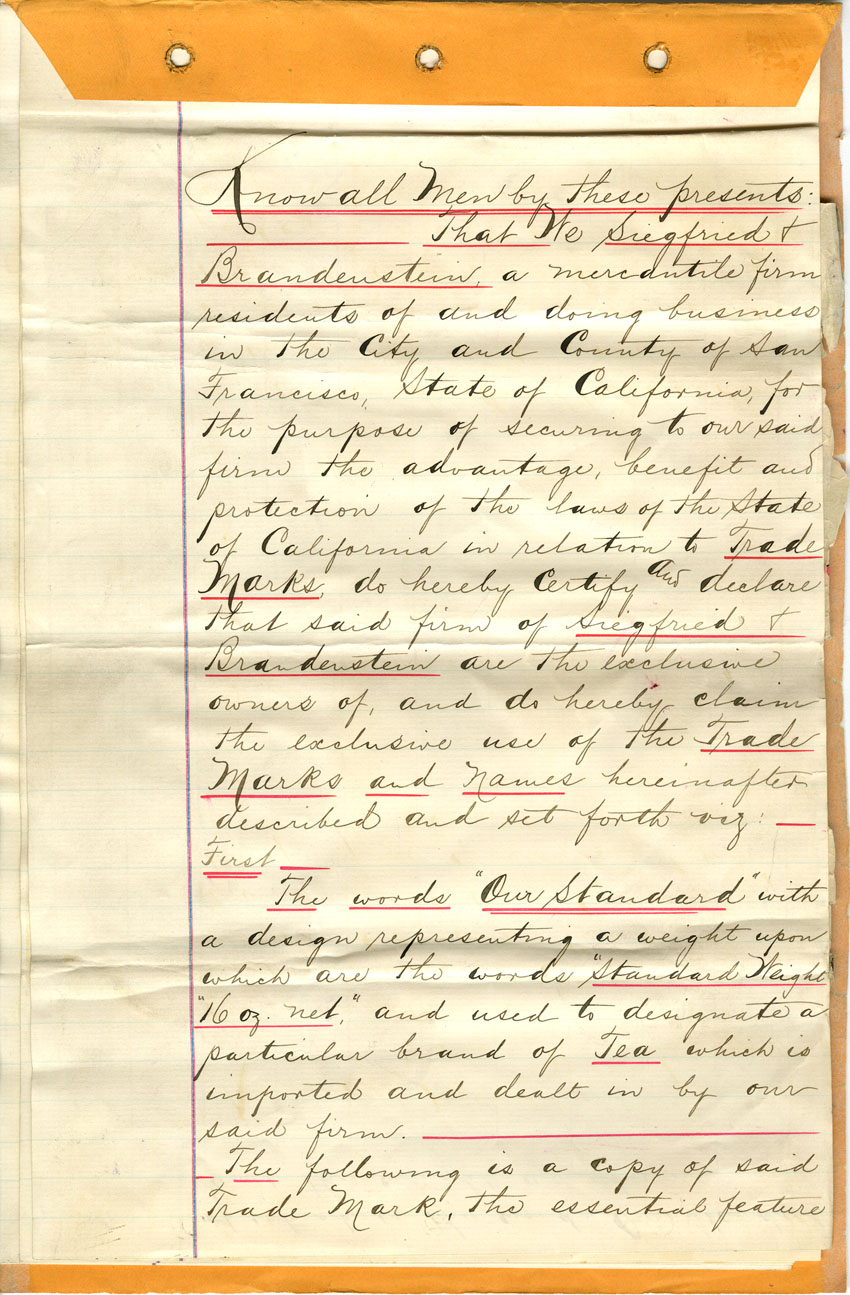 Know all Men by these presents:
That We Siegfried &
Brandenstein, a mercantile firm
residents of and doing business
in the City and County of San
Francisco, State of California, for
the purpose of securing to our said
firm the advantage, benefit and
protection of the laws of the State
of California in relation to Trade
Marks, do hereby Certify and declare
that said firm of Siegfried &
Brandenstein are the exclusive
owners of, and do hereby claim
the exclusive use of the Trade
Marks and Names hereinafter
described and set forth viz:
First
The words "Our Standard" with
a design representing a weight upon
which are the words "Standard Weight
"16 oz. net," and used to designate a
particular brand of Tea which is
imported and dealt in by our
said firm.
The following is a copy of said
Trade Mark, the essential feature